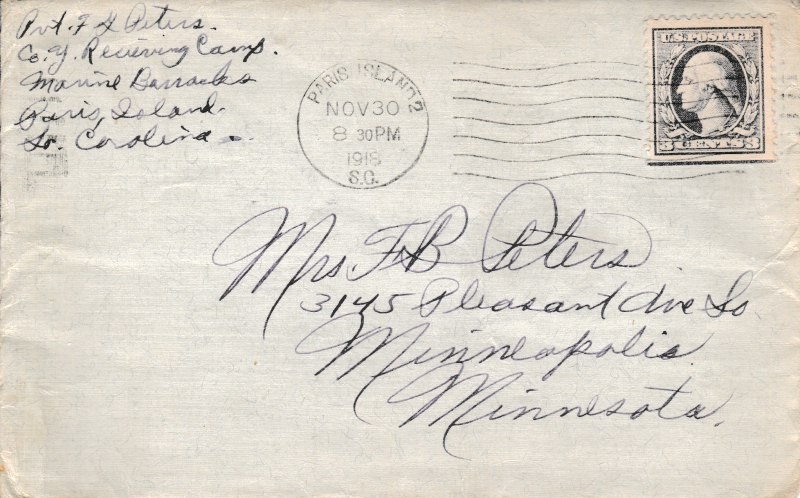 Pvt. F L Peters.
Co. Y. Recieving Camp.
Marine Barracks
Paris, Island.
So. Carolina.
PARIS ISLAND 2
NOV 30
8 30 PM
1918
S.C.
U.S. POSTAGE
3 CENTS 3
Mrs F B Peters.
3145 Pleasant Ave So.
Minneapolis.
Minnesota.